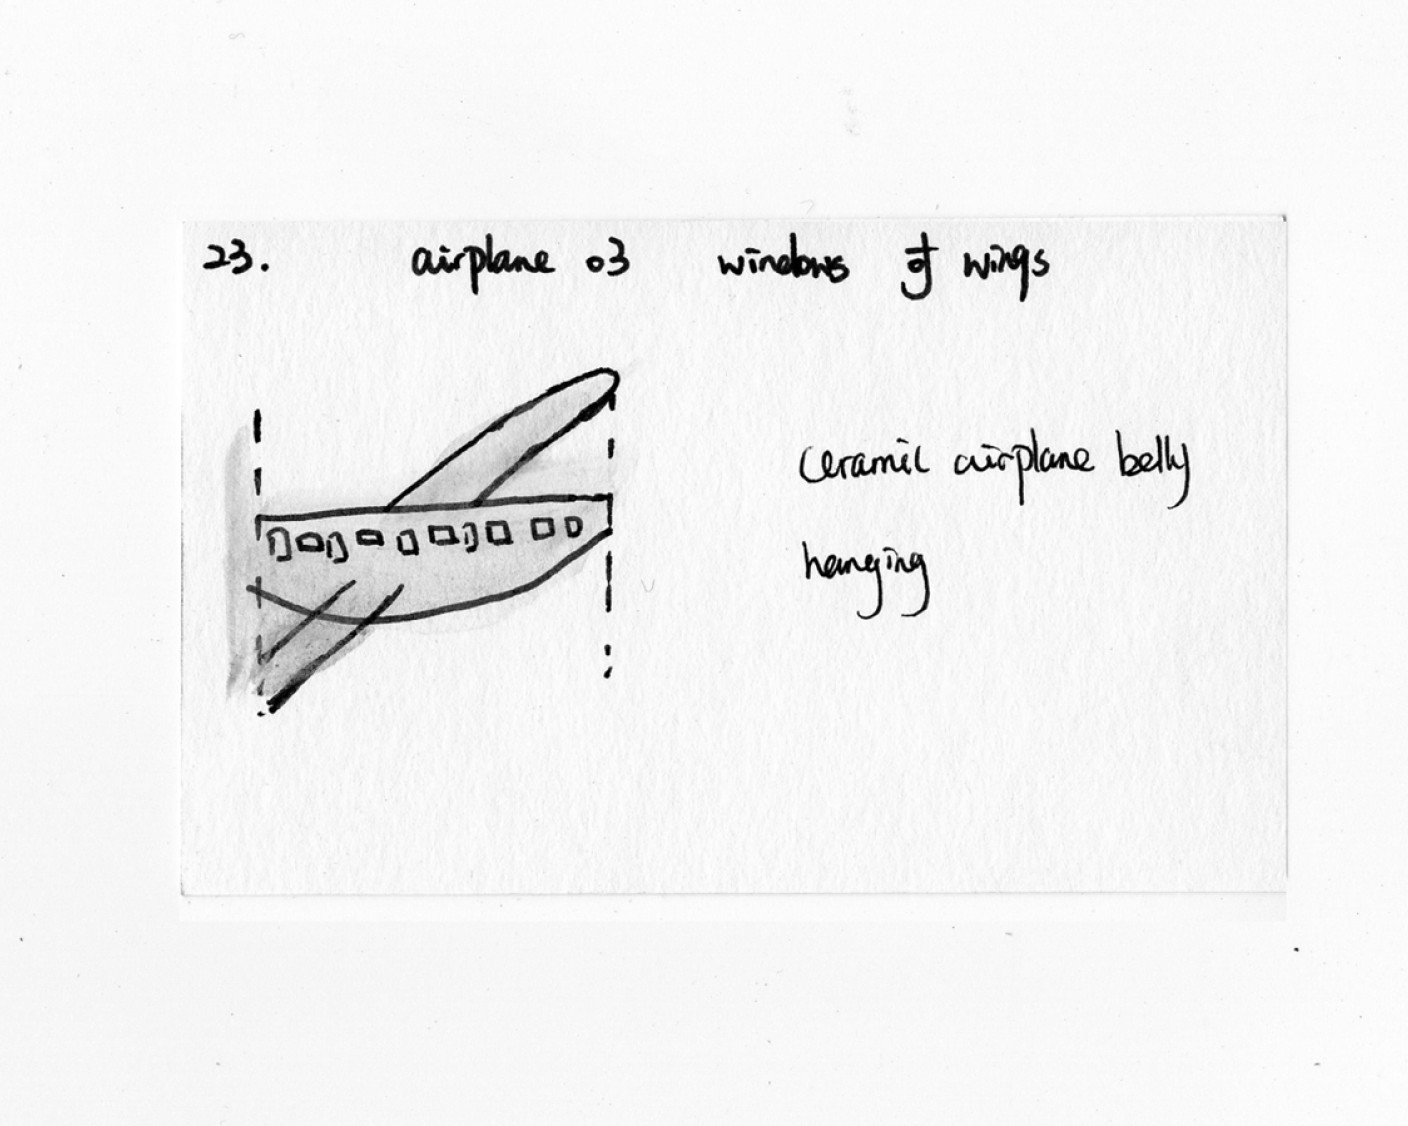 23. airplane 03 windows of wings
ceramic airplane belly
hanging